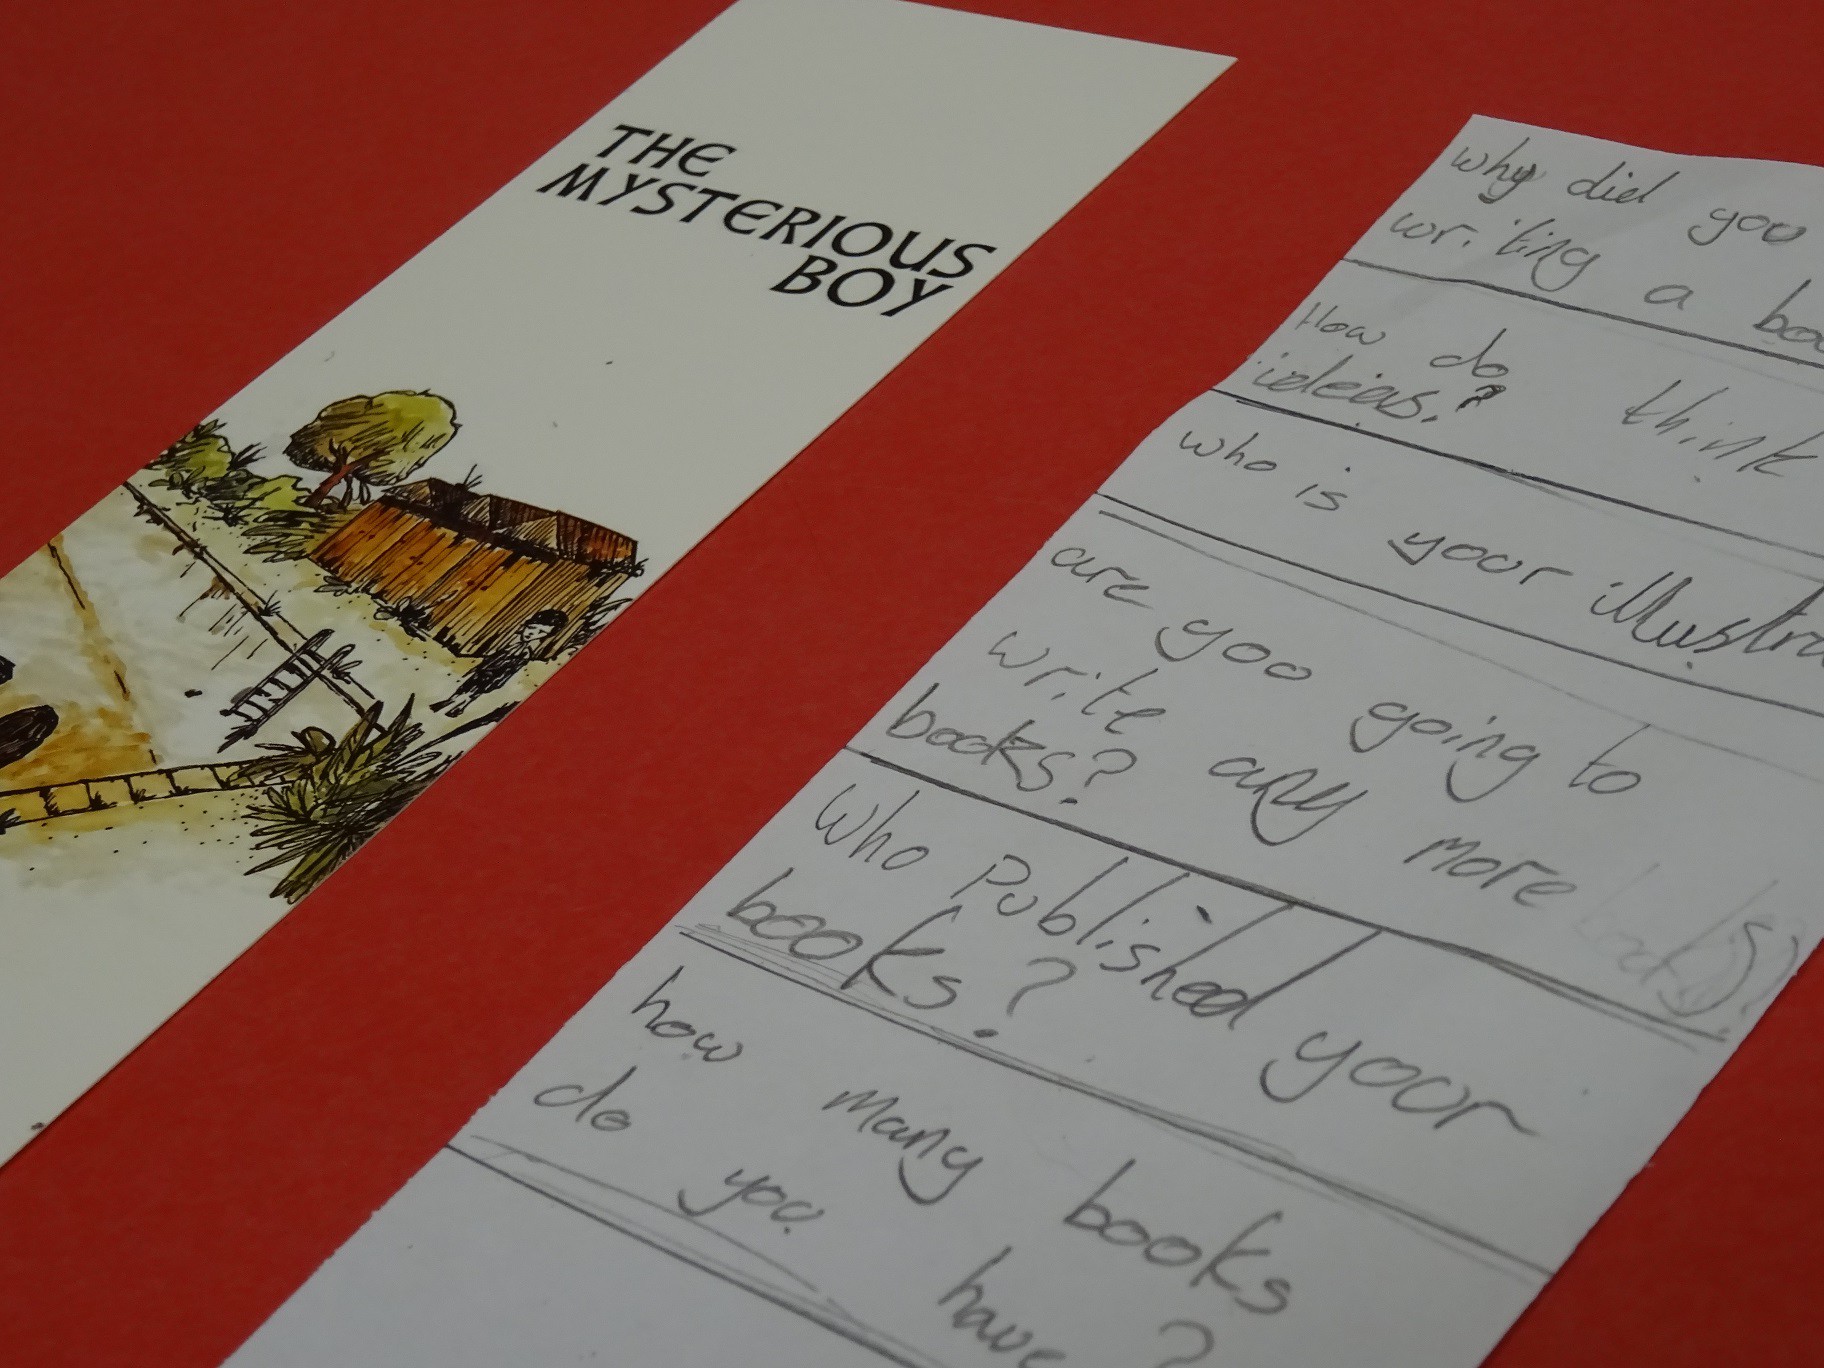 THE
MYSTERIOUS
BOY
why did you
writing a boo
How do think
ideias?
who is your illustra
are you going to
write any more
books?
Who Published your
books?
how many books
do you have?